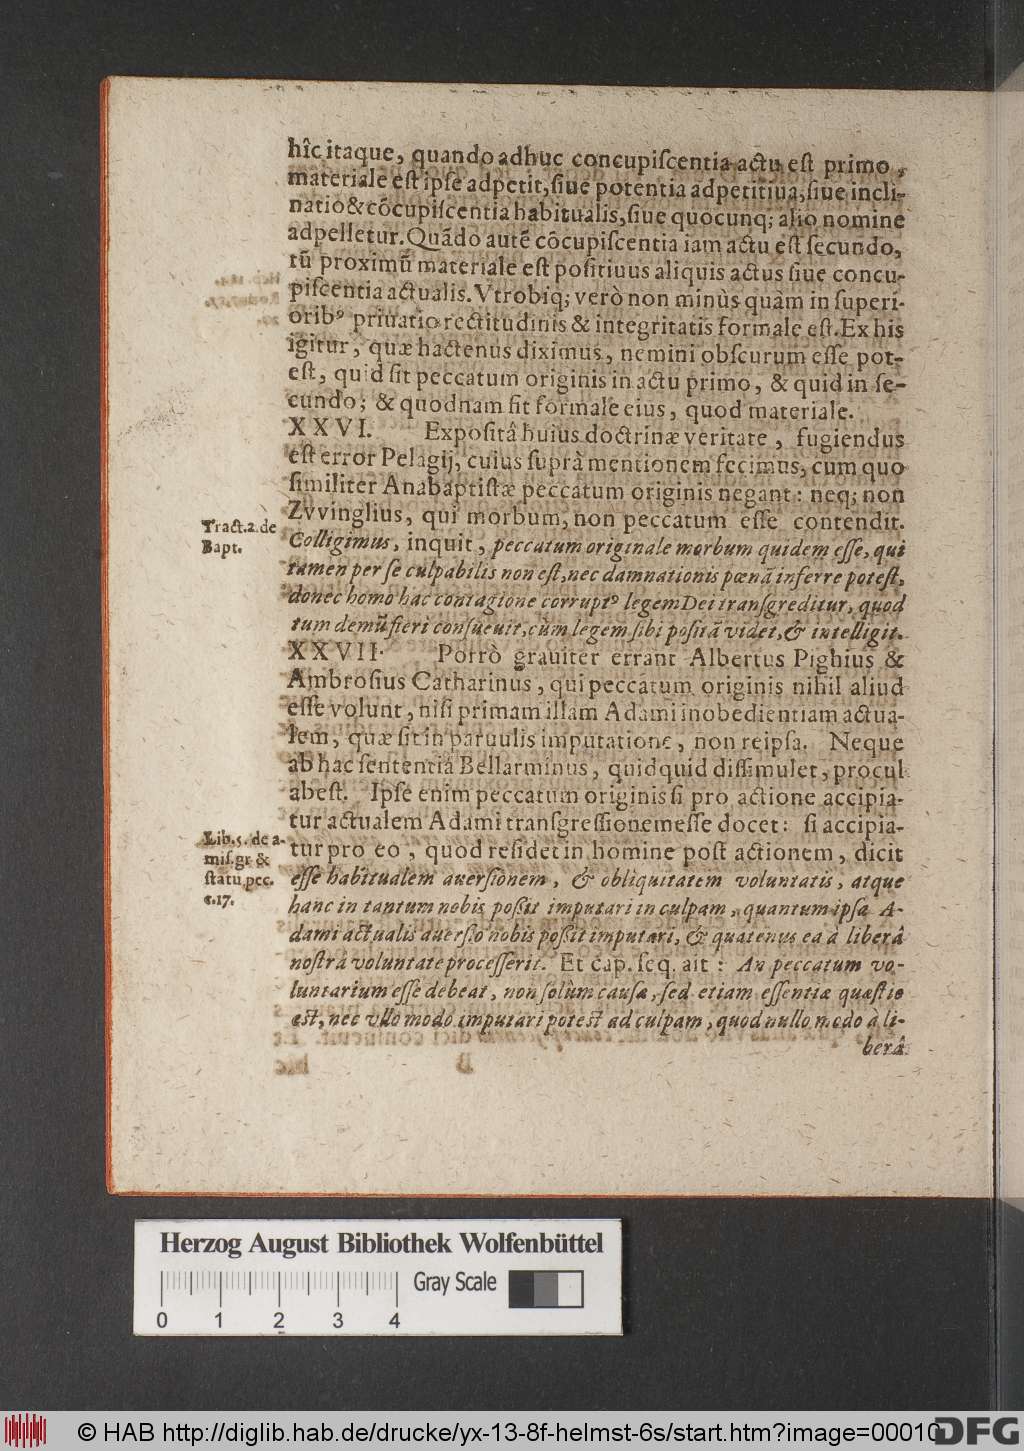 hîc itaque, quando adhuc concupiſcentia actu eſt primo,
materiale eſt ipſe adpetit, ſiue potentia adpetitiua, ſiue incli-
natio & cōcupiſcentia habitualis, ſiue quocunq; alio nomine
adpelletur. Quādo autē cōcupiſcentia iam actu eſt ſecundo,
tū proximū materiale eſt poſitiuus aliquis actus ſiue concu-
piſcentia actualis. Vtrobiq; verò non minùs quàm in ſuperi-
oribꝰ priuatio rectitudinis & integritatis formale eſt. Ex his
igitur, quæ hactenus diximus, nemini obſcurum eſſe pot-
eſt, quid ſit peccatum originis in actu primo, & quid in ſe-
cundo; & quodnam ſit formale eius, quod materiale.
XXVI. Expoſitâ huius doctrinæ veritate, fugiendus
eſt error Pelagij, cuius ſuprà mentionem fecimus, cum quo
ſimiliter Anabaptiſtæ peccatum originis negant: neq; non
Zvvinglius, qui morbum, non peccatum eſſe contendit.
Tract. 2. de
Bapt.
Colligimus, inquit, peccatum originale morbum quidem eſſe, qui
tamen per ſe culpabilis non eſt, nec damnationis pœnā inferre poteſt,
donec homo hac contagione corruptꝰ legem Dei tranſgreditur, quod
tum demū fieri conſueuit, cùm legem ſibi poſitā videt, & intelligit.
XXVII. Porrò grauiter errant Albertus Pighius &
Ambroſius Catharinus, qui peccatum originis nihil aliud
eſſe volunt, niſi primam illam Adami inobedientiam actua-
lem, quæ ſit in paruulis imputatione, non reipſa. Neque
ab hac ſententiâ Bellarminus, quidquid diſſimulet, procul
abeſt. Ipſe enim peccatum originis ſi pro actione accipia-
tur actualem Adami tranſgreſſionem eſſe docet: ſi accipia-
tur pro eo, quod reſidet in homine poſt actionem, dicit
Lib. 5. de a-
miſ. gr. &
ſtatu pec.
c. 17.
eſſe habitualem averſionem, & obliquitatem voluntatis, atque
hanc in tantum nobis poſſit imputari in culpam, quantum ipſa A-
dami actualis auerſio nobis poſſit imputari, & quatenus ea à liberâ
noſtrâ voluntate proceſſerit. Et cap. ſeq. ait: An peccatum vo-
luntarium eſſe debeat, non ſolùm cauſæ, ſed etiam eſſentiæ quæſtio
eſt, nec vllo modo imputari poteſt ad culpam, quod nullo modo à li-
berâ
Herzog August Bibliothek Wolfenbüttel
0 1 2 3 4
Gray Scale
© HAB http://diglib.hab.de/drucke/yx-13-8f-helmst-6s/start.htm?image=00010
DFG